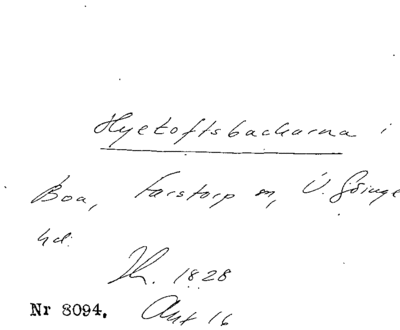 Hyetoftsbackarna i
Boa, Farstorp sn, V. Göinge
hd.
Jh. 1828
Nr 8094. Akt 16